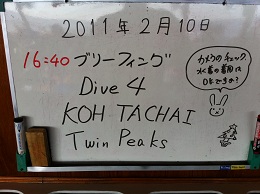 2011年2月10日
16:40 ブリーフィング
Dive 4
KOH TACHAI
Twin Peaks
カメラのチェック
水着の着用は
OKですか?